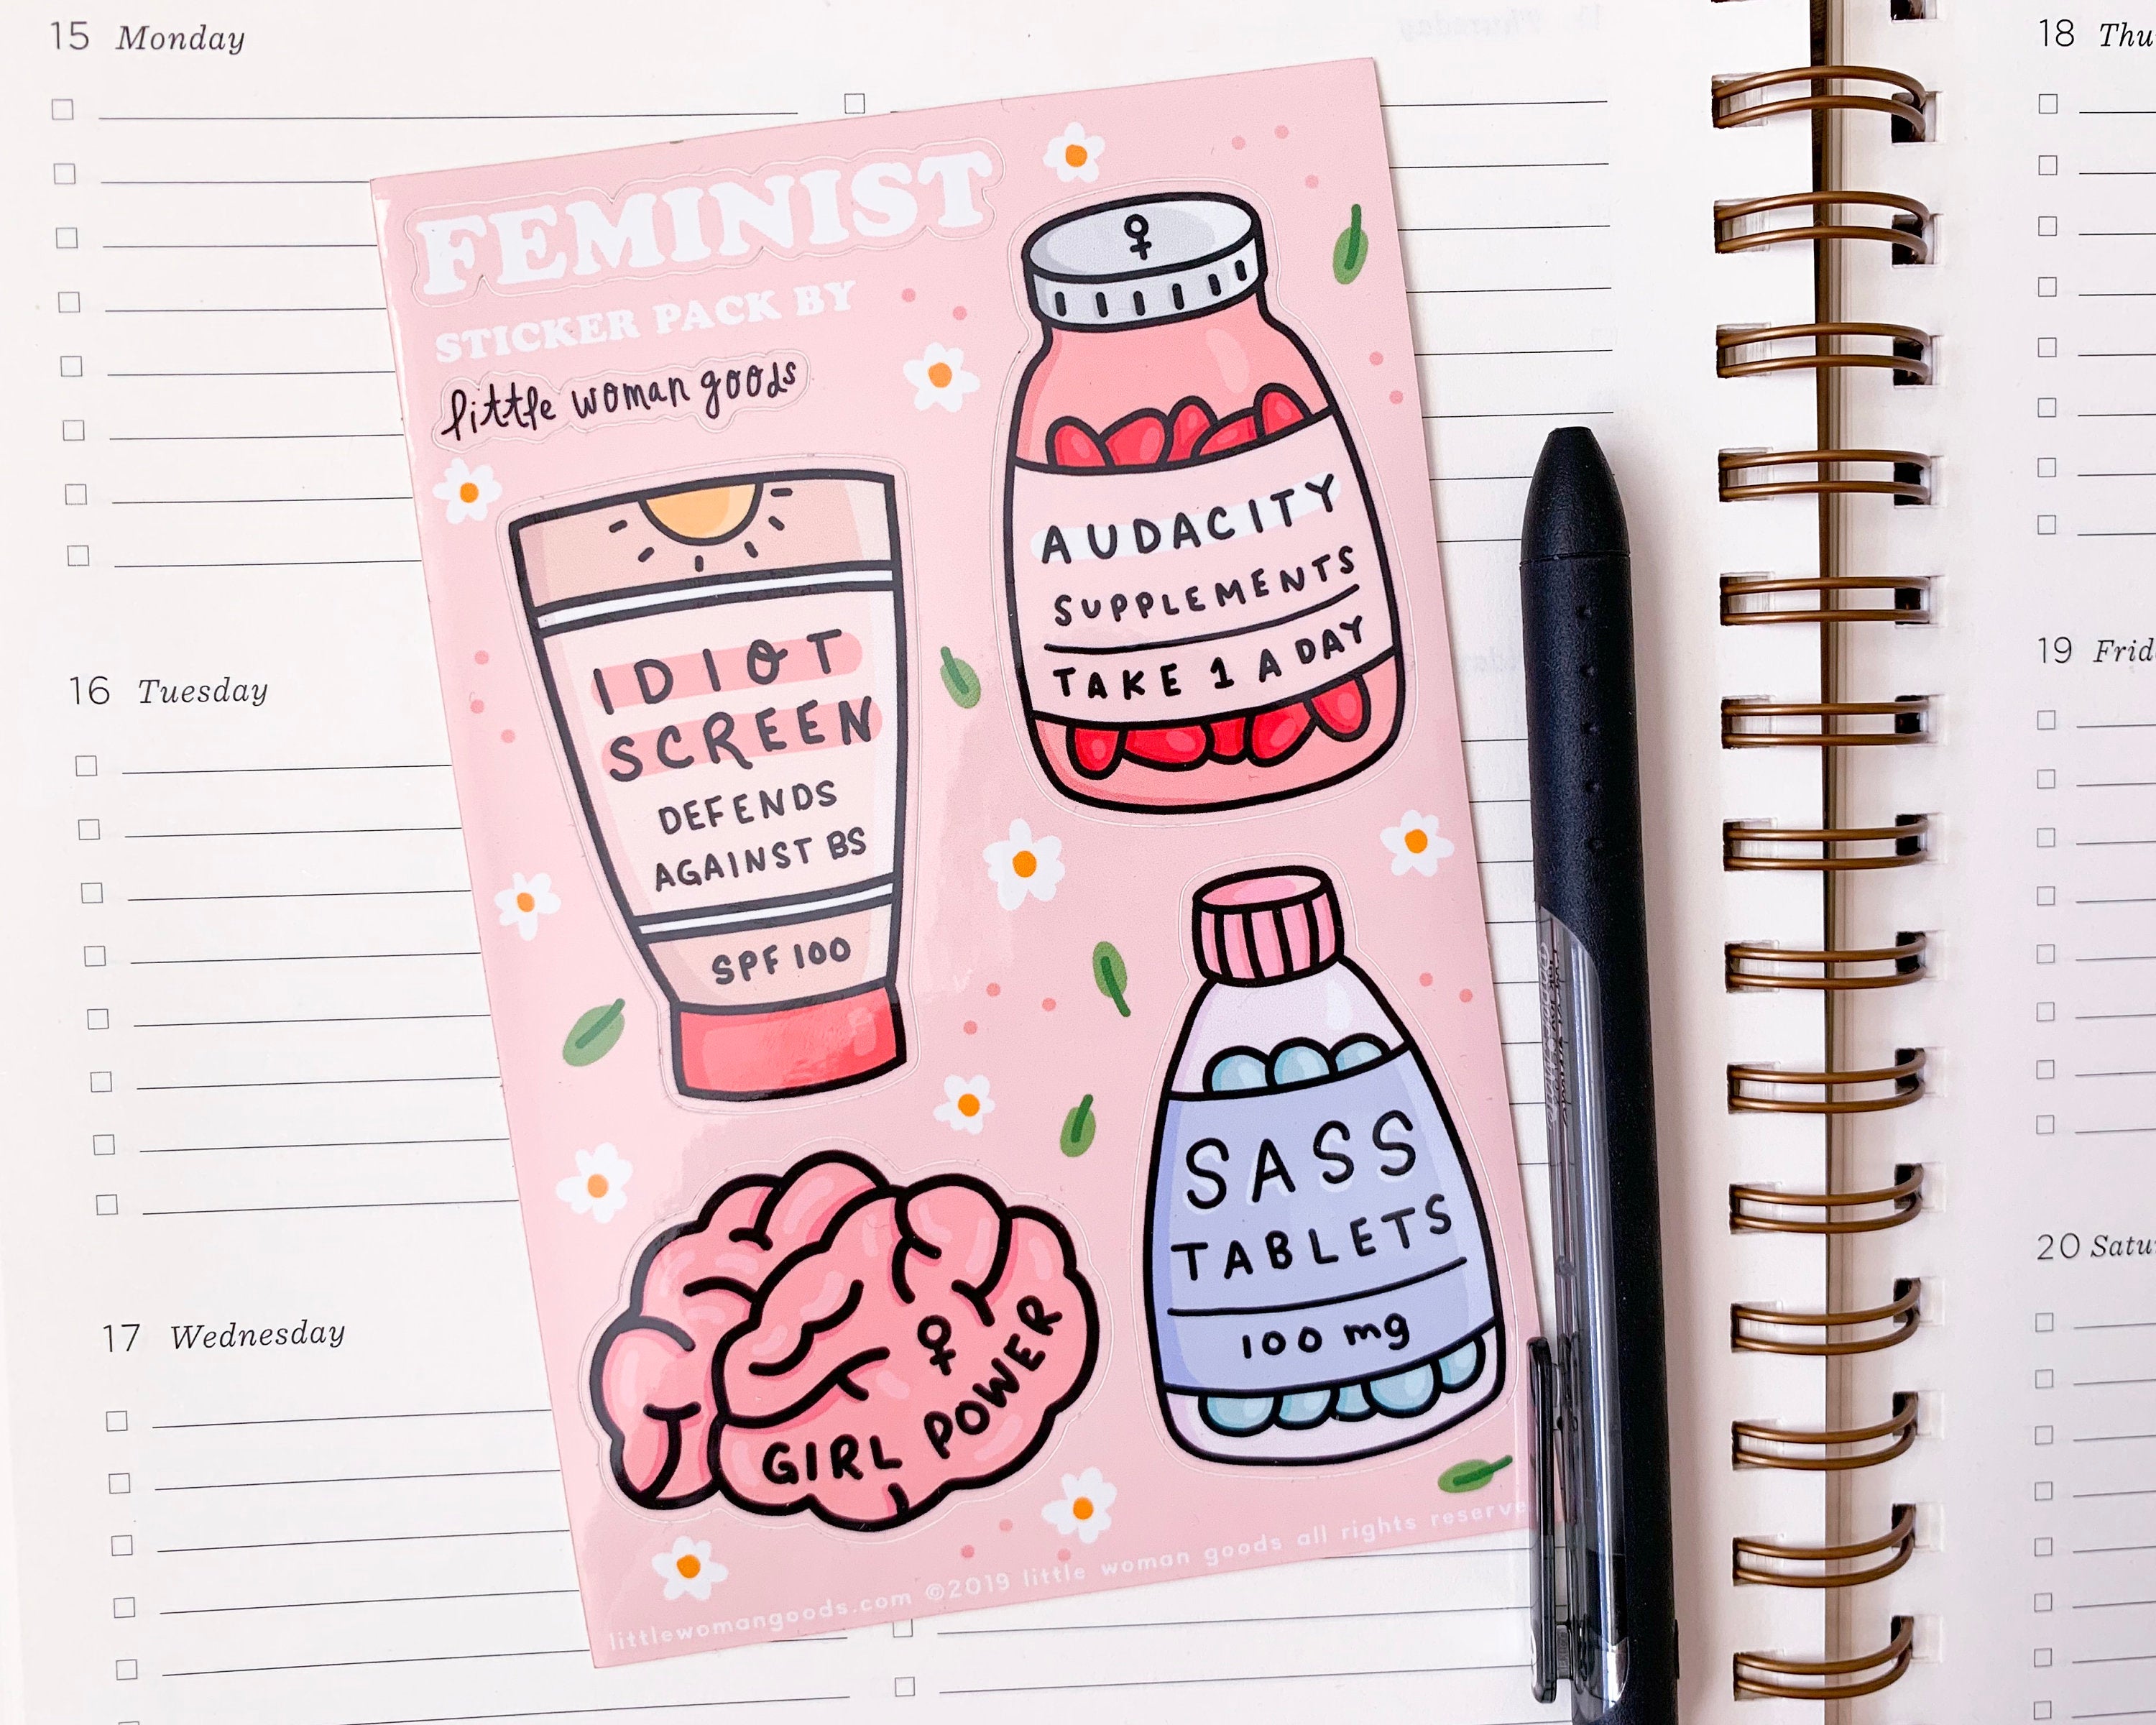 15 Monday
18 Thu
FEMINIST
STICKER PACK BY
little woman goods
AUDACITY
SUPPLEMENTS
TAKE 1 A DAY
IDIOT
SCREEN
DEFENDS
AGAINST BS
SPF 100
16 Tuesday
19 Frid
SASS
TABLETS
100 mg
GIRL POWER
17 Wednesday
20 Satu
littlewomangoods.com ©2019 little woman goods all rights reserve